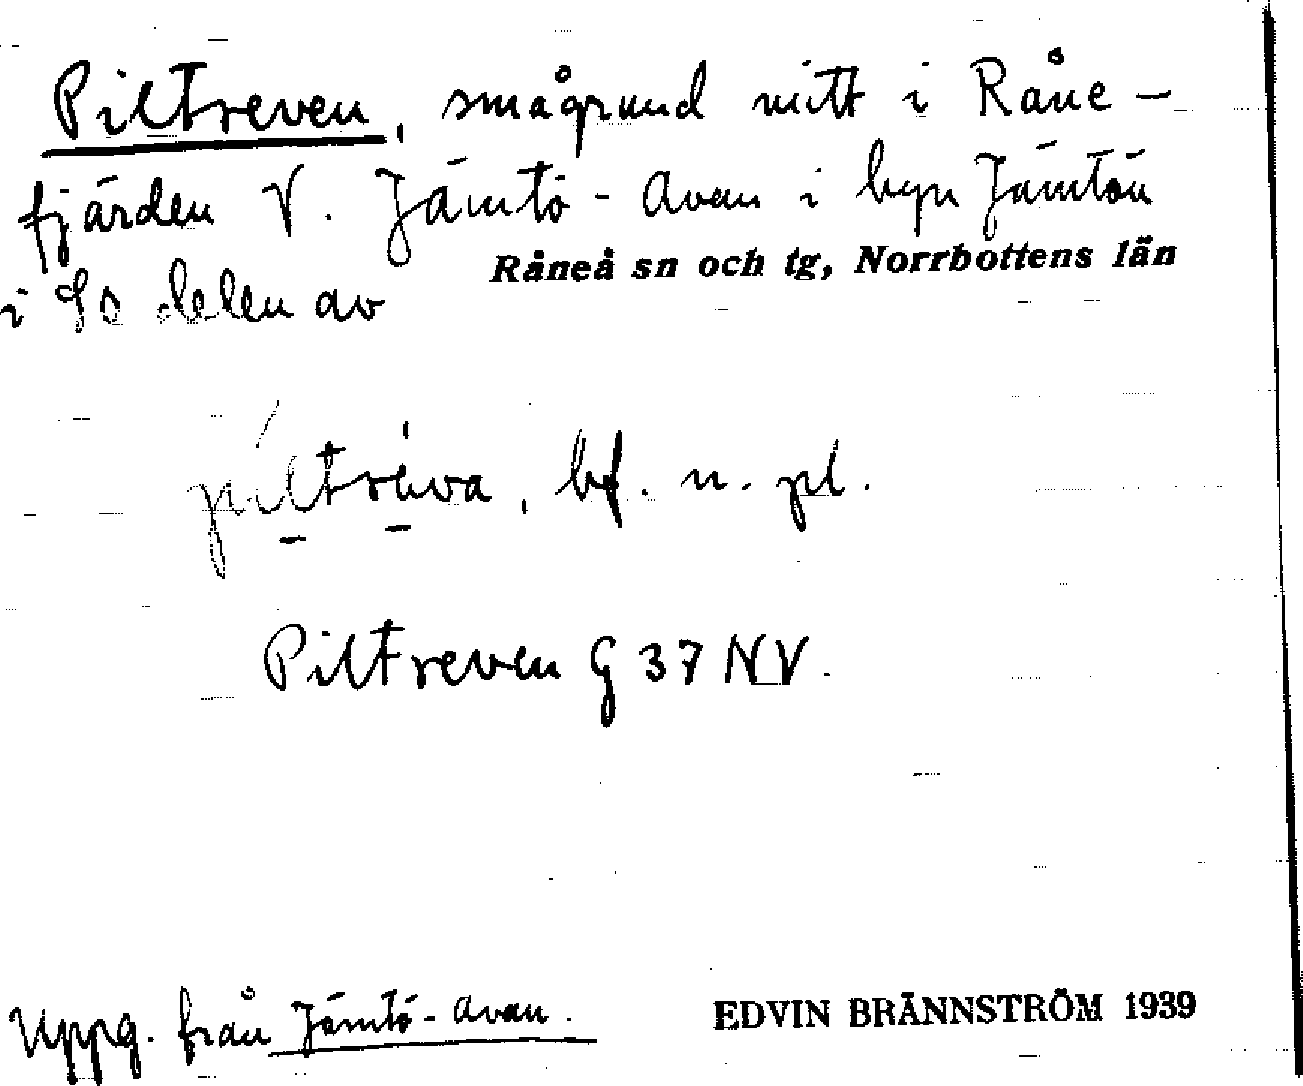 Piltreven, smågrund mitt i Råne-
fjärden V. Jämtö-Avan i byn Jämtön
i So delen av
Råneå sn och tg, Norrbottens län
píltrèva, bf. n. pl.
Piltreven G 37 NV.
Uppg. från Jämtö-Avan.
EDVIN BRÄNNSTRÖM 1939